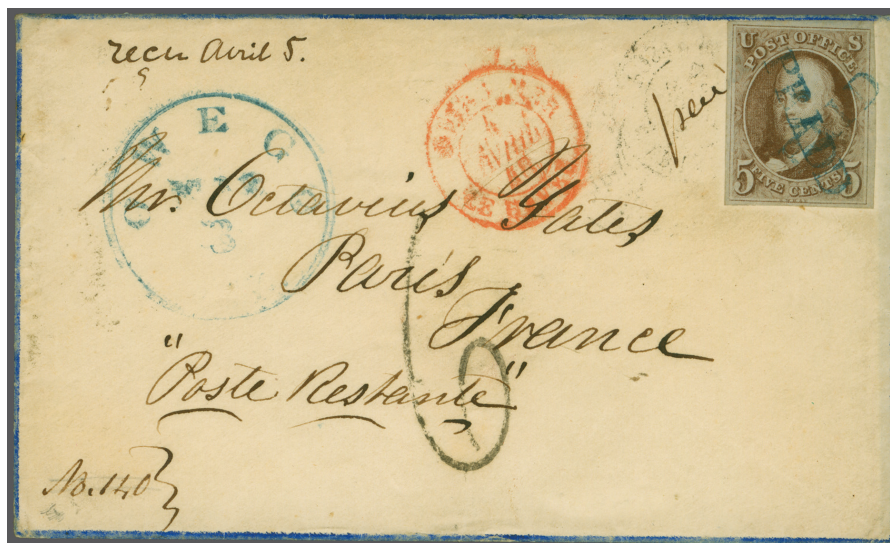 recu Avril 5.
U S
POST OFFICE
5 FIVE CENTS 5
PAID
AVRIL
LE HAVRE
3
Mr. Octavius Yates
Paris
France
"Poste Restante"
6
No. 140